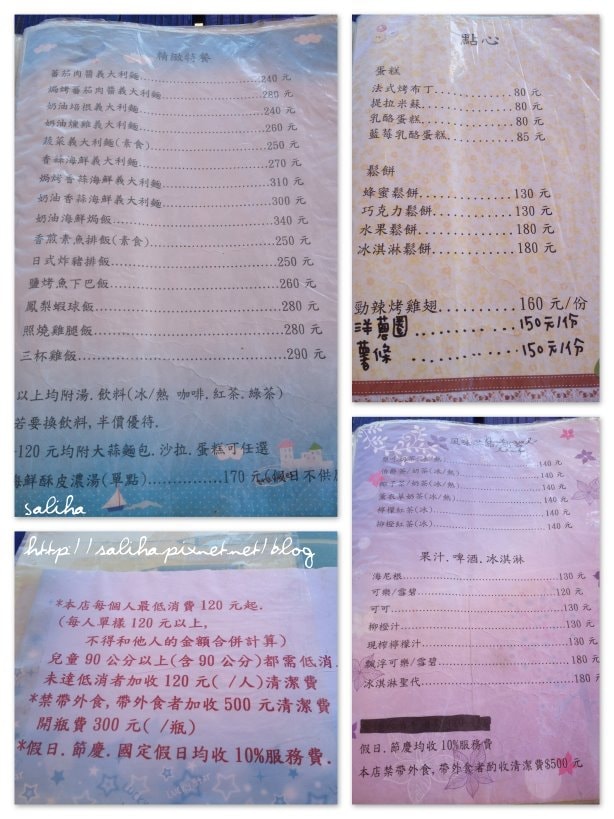 精緻特餐
蕃茄肉醬義大利麵...240 元
焗烤蕃茄肉醬義大利麵...280 元
奶油培根義大利麵...240 元
奶油燻雞義大利麵...260 元
蔬菜義大利麵(素食)...250 元
香蒜海鮮義大利麵...270 元
焗烤香蒜海鮮義大利麵...310 元
奶油香蒜海鮮義大利麵...300 元
奶油海鮮焗飯...340 元
香煎素魚排飯(素食)...250 元
日式炸豬排飯...250 元
鹽烤魚下巴飯...260 元
鳳梨蝦球飯...280 元
照燒雞腿飯...280 元
三杯雞飯...290 元
以上均附湯.飲料(冰/熱 咖啡.紅茶.綠茶)
若要換飲料,半價優待.
120 元均附大蒜麵包.沙拉.蛋糕可任選
海鮮酥皮濃湯(單點)...170 元(假日不供
saliha
http://saliha.pixnet.net/blog
*本店每個人最低消費 120 元起.
(每人單樣 120 元以上,
不得和他人的金額合併計算)
兒童 90 公分以上(含 90 公分)都需低消.
未達低消者加收 120 元( /人)清潔費
*禁帶外食,帶外食者加收 500 元清潔費
開瓶費 300 元( /瓶)
*假日.節慶.國定假日均收 10%服務費.
點心
蛋糕
法式烤布丁...80 元
提拉米蘇...80 元
乳酪蛋糕...80 元
藍莓乳酪蛋糕...85 元
鬆餅
蜂蜜鬆餅...130 元
巧克力鬆餅...130 元
水果鬆餅...180 元
冰淇淋鬆餅...180 元
勁辣烤雞翅...160 元/份
洋蔥圈...150元/份
薯條...150元/份
風味
(冰/熱)...140 元
伯爵茶/奶茶(冰/熱)...140 元
椰子茶/奶茶(冰/熱)...140 元
薰衣草奶茶(冰/熱)...140 元
檸檬紅茶(冰)...140 元
柳橙紅茶(冰)...140 元
果汁.啤酒.冰淇淋
海尼根...130 元
可樂/雪碧...120 元
可可...130 元
柳橙汁...130 元
現榨檸檬汁...130 元
飄浮可樂/雪碧...180 元
冰淇淋聖代...180 元
假日.節慶均收 10%服務費
本店禁帶外食,帶外食者酌收清潔費$500 元